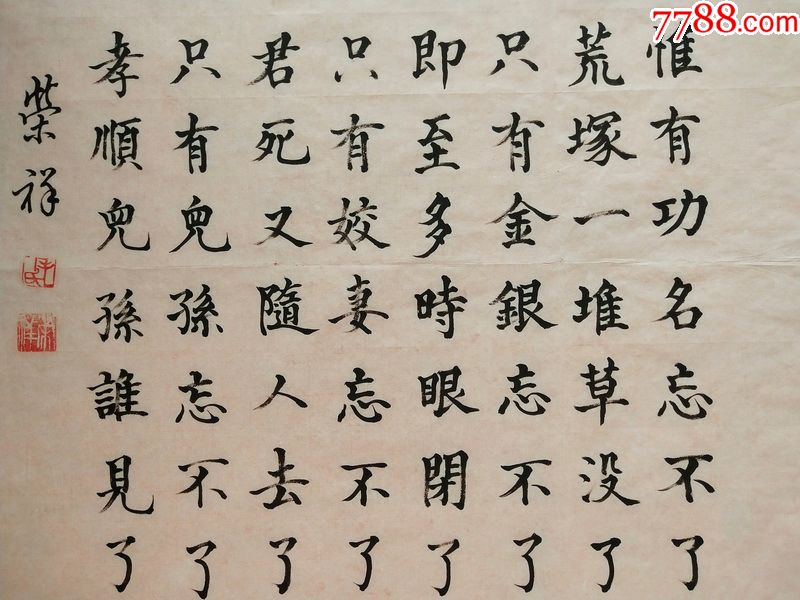 7788.com
惟有功名忘不了
荒塚一堆草没了
只有金銀忘不了
即至多時眼閉了
只有姣妻忘不了
君死又隨人去了
只有兒孫忘不了
孝順兒孫誰見了
榮祥